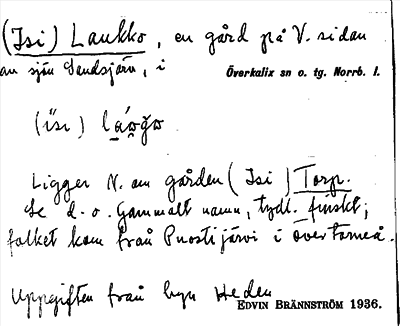 (Isi) Laukko, en gård på V. sidan
av sjön Sandsjärv, i Överkalix sn o. tg. Norrb. l.
(ïsı)
Ligger N. om gården (Isi) Torp.
Se d. o. Gammalt namn, tydl. finskt;
folket kom från Puostijärvi i Övertorneå.
Uppgiften från byn Heden
EDVIN BRÄNNSTRÖM 1936.